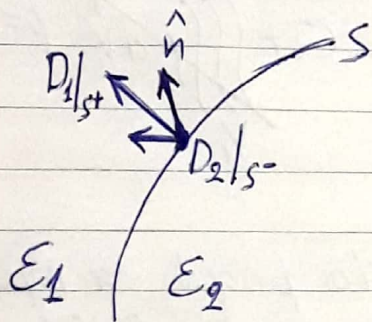 n̂
S
D₁|ₛ+
D₂|ₛ-
ε₁ ε₂